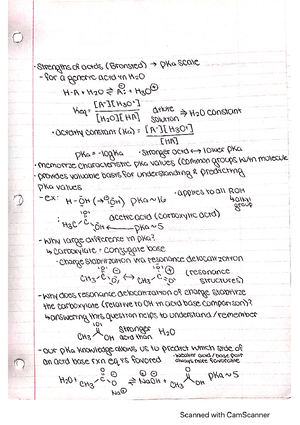 · Strengths of acids (Bronsted) → pKa scale
- for a generic acid in H₂O
H-A + H₂O ⇌ A:⊖ + H₃O⊕
Keq = [A⁻][H₃O⁺] / [H₂O][HA] dilute solution ⇒ H₂O constant
· acidity constant (Ka) = [A⁻][H₃O⁺] / [HA]
pKa = -logKa · stronger acid ↔ lower pKa
· memorize characteristic pKa values (common groups w/in molecule)
· provides valuable basis for understanding & predicting
pKa values
- ex: H-ÖH (→ ÖH) pKa ~ 16 · applies to all ROH
↳ alkyl group
acetic acid (carboxylic acid)
H₃C-C OH pKa ~ 5
- Why large difference in pKa?
↳ carboxylate = conjugate base
· charge stabilization via resonance delocalization
CH₃-C O ⊖ ↔ CH₃-C O (resonance
structures)
- Why does resonance delocalization of charge stabilize
the carboxylate (relative to OH in acid base comparison)?
↳ answering this question helps to understand / remember
CH₃ OH stronger acid than H₂O
- our pKa knowledge allows us to predict which side of
an acid base rxn eq is favored · weaker acid/base pair
always more favorable
H₂O + CH₃ O Na⊕ ⇌ NaOH + CH₃ OH pKa ~ 5
Scanned with CamScanner